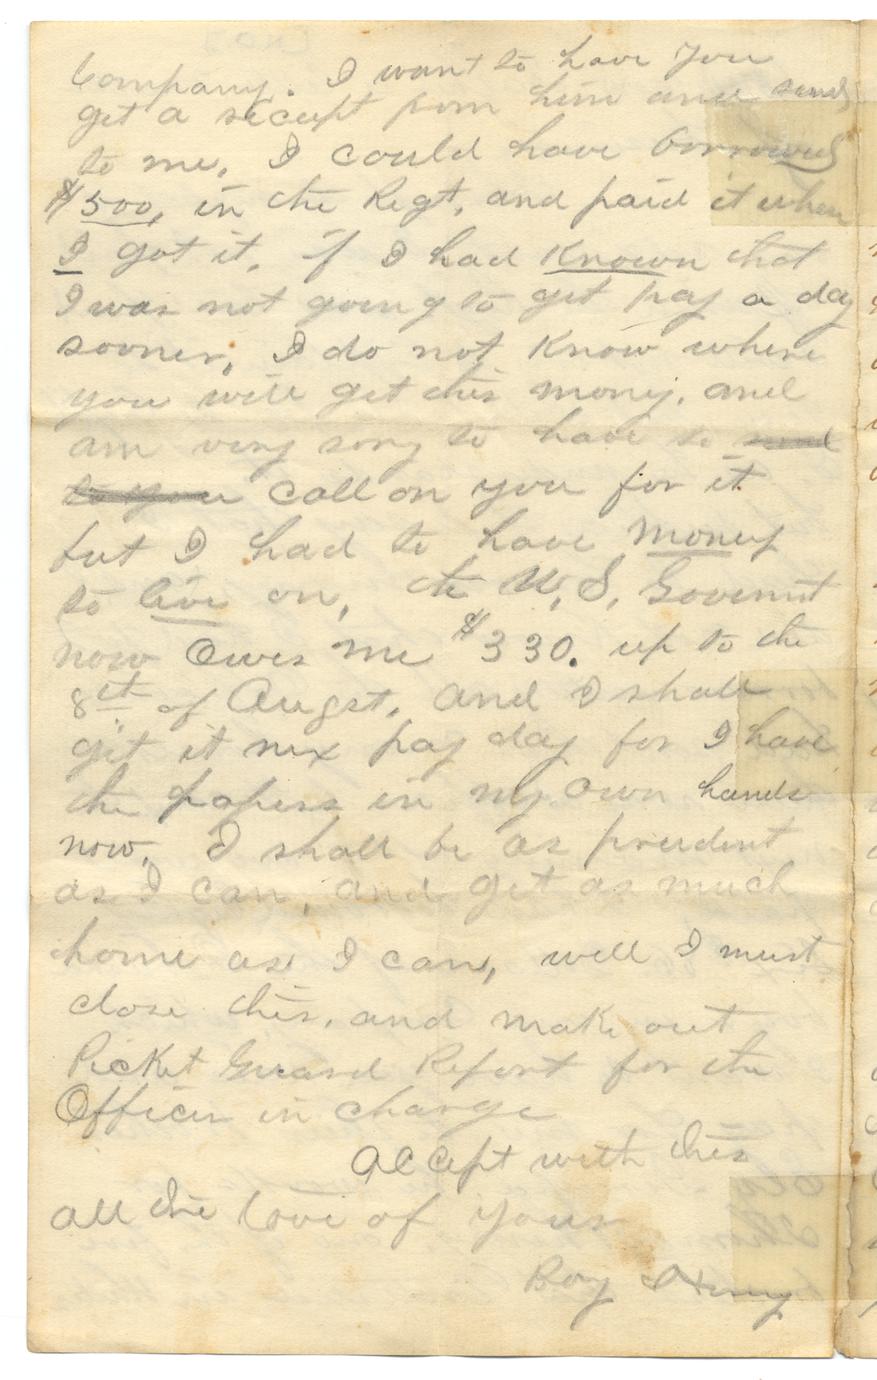 Company. I want to have you
get a receipt from him and send
to me, I could have borrowed
$500, in the Regt, and paid it when
I got it, if I had Known that
I was not going to get pay a day
sooner, I do not Know where
you will get this money, and
am very sorry to have to send
to you call on you for it
but I had to have money
to live on, the U, S, Governmt
now Owes me $330. up to the
8th of Augst, and I shall
get it nex pay day for I have
the papers in my own hands
now, I shall be as prudent
as I can, and get as much
home as I can, well I must
close this, and make out
Picket Guard Report for the
Officer in charge
Accept with this
all the love of your
Boy Henry